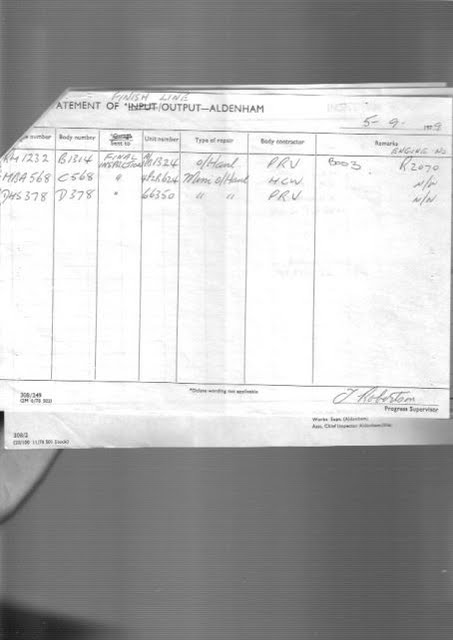 FINISH LINE
ATEMENT OF *INPUT/OUTPUT—ALDENHAM
5-9-1979
number Body number sent to Unit number Type of repair Body contractor Remarks ENGINE NO
RM1232 B1314 FINAL INSPECTION B1324 o/Haul PRV B003 R2070
MBA568 C568 " o/Haul MCW N/N
DMS378 D378 " 66350 " " PRV N/N
*Delete wording not applicable
308/249
T Robertson
Progress Supervisor
Works Supt. (Aldenham).
Asst. Chief Inspector
308/2